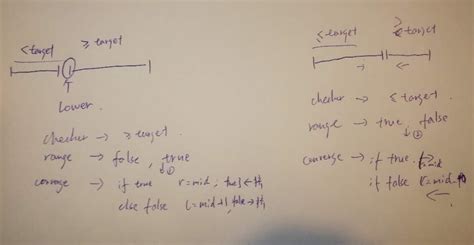 < target ≥ target
Lower.
checker → ≥ target
range → false, true
②
converge → if true r=mid;
else false l=mid+1,
≤ target
> target
checker → ≤ target.
range → true, false
②
converge → if true
if false